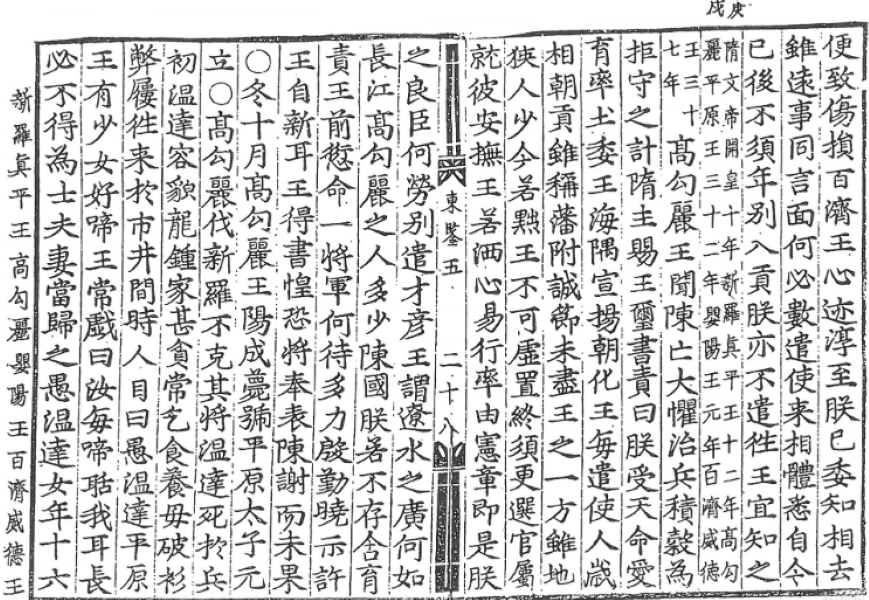 庚戌
便致傷損百濟王心迹淳至朕已委知相去
雖遠事同言面何必數遣使来相體悉自今
已後不須年別入貢朕亦不遣徃王宜知之
隋文帝開皇十年新羅眞平王十二年高勾
麗平原王三十二年嬰陽王元年百濟威德
王三十七年 高勾麗王聞陳亡大懼治兵積穀為
拒守之計隋主賜王璽書責曰朕受天命愛
育率土委王海隅宣揚朝化王每遣使人歲
相朝貢雖稱藩附誠節未盡王之一方雖地
狹人少今若黜王不可虛置終須更選官屬
就彼安撫王若洒心易行率由憲章即是朕
東鑒五 二十八
之良臣何勞別遣才彦王謂遼水之廣何如
長江高勾麗之人多少陳國朕若不存含育
責王前愆命一將軍何待多力殷勤曉示許
王自新耳王得書惶恐將奉表陳謝而未果
○冬十月高勾麗王陽成薨號平原太子元
立○高勾麗伐新羅不克其將温達死於兵
初温達容貌龍鍾家甚貧常乞食養母破衫
弊屨徃来於市井間時人目曰愚温達平原
王有少女好啼王常戲曰汝每啼聒我耳長
必不得為士夫妻當歸之愚温達女年十六
新羅眞平王高勾麗嬰陽王百濟威德王